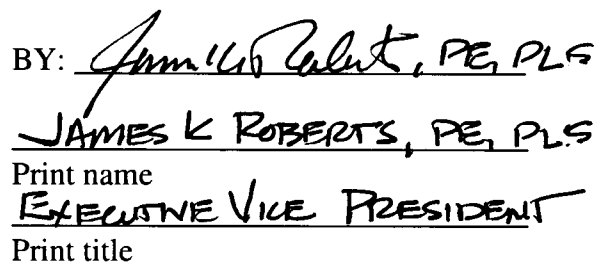 BY: James K Roberts, PE, PLS
JAMES K ROBERTS, PE, PLS
Print name
EXECUTIVE VICE PRESIDENT
Print title